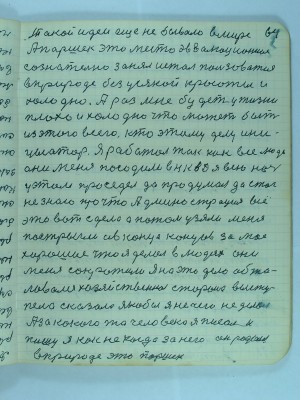 Такой идеи еще не бывало в мире 64
А паршек это место эвакационния
сознателно занял и стал ползоватся
в природе без усякой красоти и
холодно. А раз мне будет у жизни
плохо и холодно что может быт
из этого всего, кто этому делу ини-
циатор. Я работал так как все люде
они меня посодили в НКВД я всю ноч
у этом проседел да продумал да стал
не знаю по что Администрация всё
это вот сделала потом узяли меня
постригли и в конце концов за мое
хорошие что я делал в людех они
меня сократили я на это дело обжа-
ловал хозяйственная сторона висту-
пела сказала якобы я нечего не делал
А за какого то человека я писал и
пишу я как не когда за него он родился
в природе это паршек